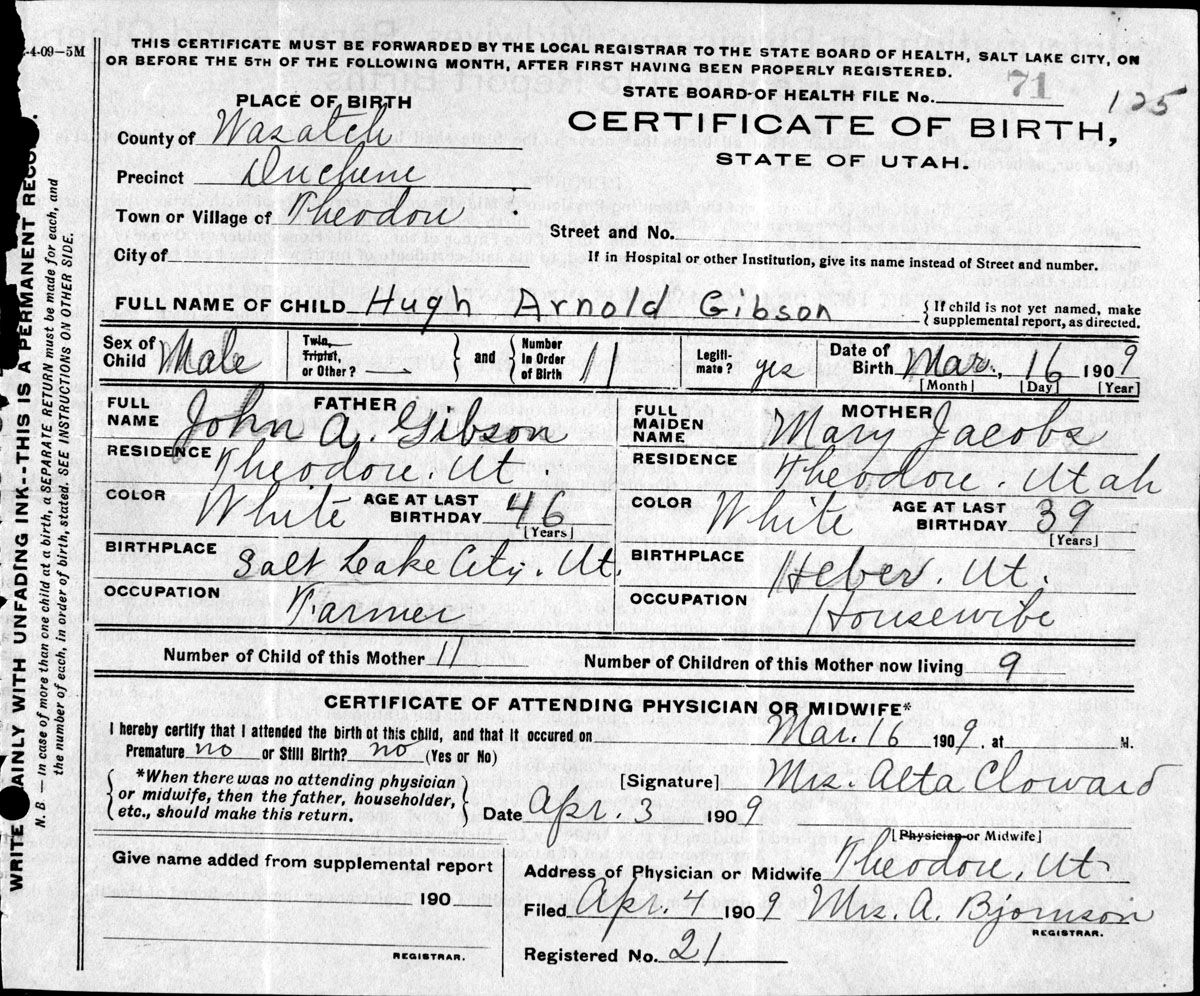 -4-09-5M
THIS CERTIFICATE MUST BE FORWARDED BY THE LOCAL REGISTRAR TO THE STATE BOARD OF HEALTH, SALT LAKE CITY, ON
OR BEFORE THE 5TH OF THE FOLLOWING MONTH, AFTER FIRST HAVING BEEN PROPERLY REGISTERED.
STATE BOARD OF HEALTH FILE No. 71 125
PLACE OF BIRTH
CERTIFICATE OF BIRTH,
STATE OF UTAH.
County of Wasatch
Precinct Duchene
Town or Village of Theodore
Street and No.
City of
If in Hospital or other Institution, give its name instead of Street and number.
FULL NAME OF CHILD Hugh Arnold Gibson {If child is not yet named, make
supplemental report, as directed.
Sex of Child Male Twin, Triplet, or Other? — and Number in Order of Birth 11 Legitimate? yes Date of Birth Mar. 16 1909
[Month] [Day] [Year]
FATHER
FULL NAME John A. Gibson
RESIDENCE Theodore. Ut
COLOR White AGE AT LAST BIRTHDAY 46
[Years]
BIRTHPLACE Salt Lake City. Ut.
OCCUPATION Farmer
MOTHER
FULL MAIDEN NAME Mary Jacobs
RESIDENCE Theodore. Utah
COLOR White AGE AT LAST BIRTHDAY 39
[Years]
BIRTHPLACE Heber. Ut.
OCCUPATION Housewife
Number of Child of this Mother 11 Number of Children of this Mother now living 9
CERTIFICATE OF ATTENDING PHYSICIAN OR MIDWIFE*
I hereby certify that I attended the birth of this child, and that it occured on Mar. 16 1909, at M.
Premature no or Still Birth? no (Yes or No)
*When there was no attending physician
or midwife, then the father, householder,
etc., should make this return.
[Signature] Mrs. Alta Cloward
Date Apr. 3 1909
[Physician or Midwife]
Give name added from supplemental report
190
REGISTRAR.
Address of Physician or Midwife Theodore, Ut.
Filed Apr. 4 1909 Mrs. A. Bjornson
REGISTRAR.
Registered No. 21
WRITE AINLY WITH UNFADING INK--THIS IS A PERMANENT RECO .
N. B. — In case of more than one child at a birth, a SEPARATE RETURN must be made for each, and
the number of each, in order of birth, stated. SEE INSTRUCTIONS ON OTHER SIDE.